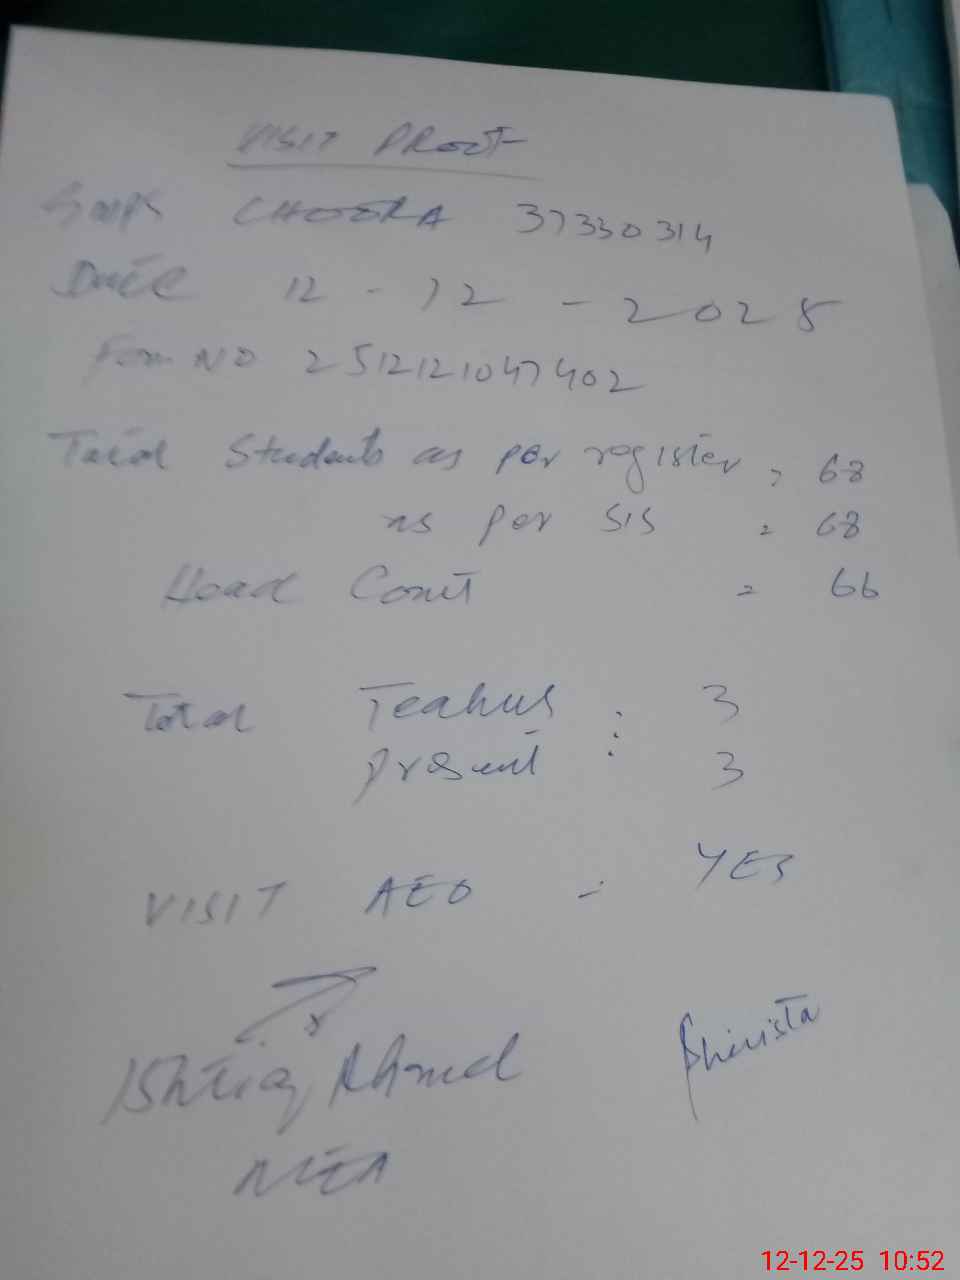 VISIT PROOF
GMPS CHOORA 37330314
Date 12 - 12 - 2025
Form NO 2512121047402
Total Students as per register = 68
as per SIS = 68
Head Count = 66
Total Teahers : 3
present : 3
VISIT AEO = YES
Ishtiaq Ahmed
MEA
12-12-25 10:52